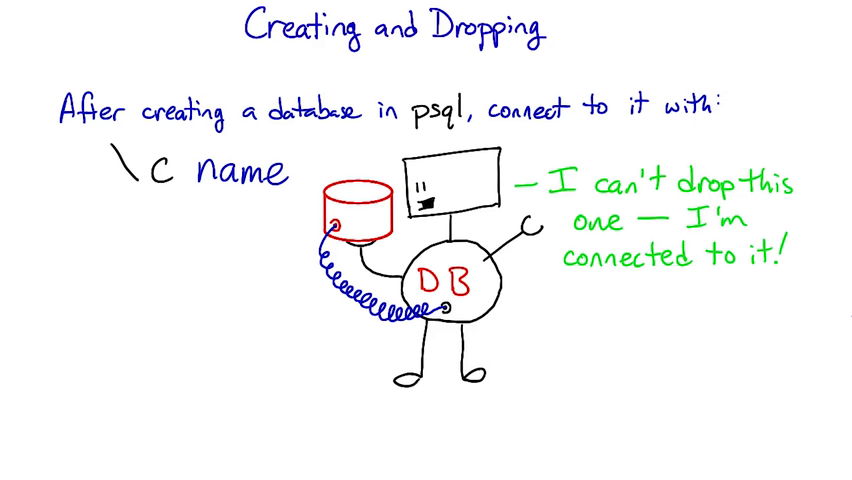 Creating and Dropping
After creating a database in psql, connect to it with:
\c name
— I can't drop this
one — I'm
connected to it!
DB